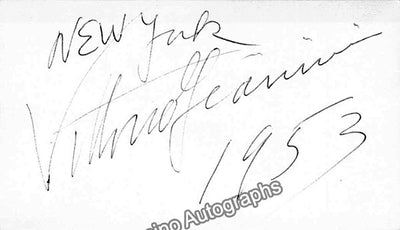 NEW York
Vittorio Giannini
1953
ino Autographs